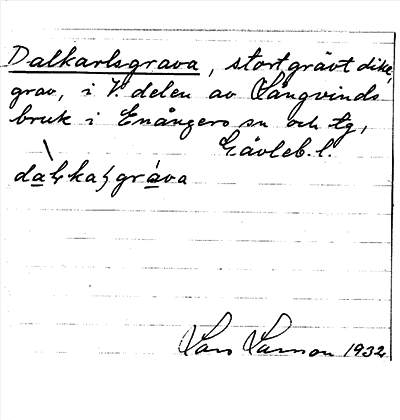 Dalkarlsgrava, stort grävt dike,
grav, i V. delen av Långvinds
bruk i Enångers sn och tg,
Gävleb. l.
Lars Larsson 1932